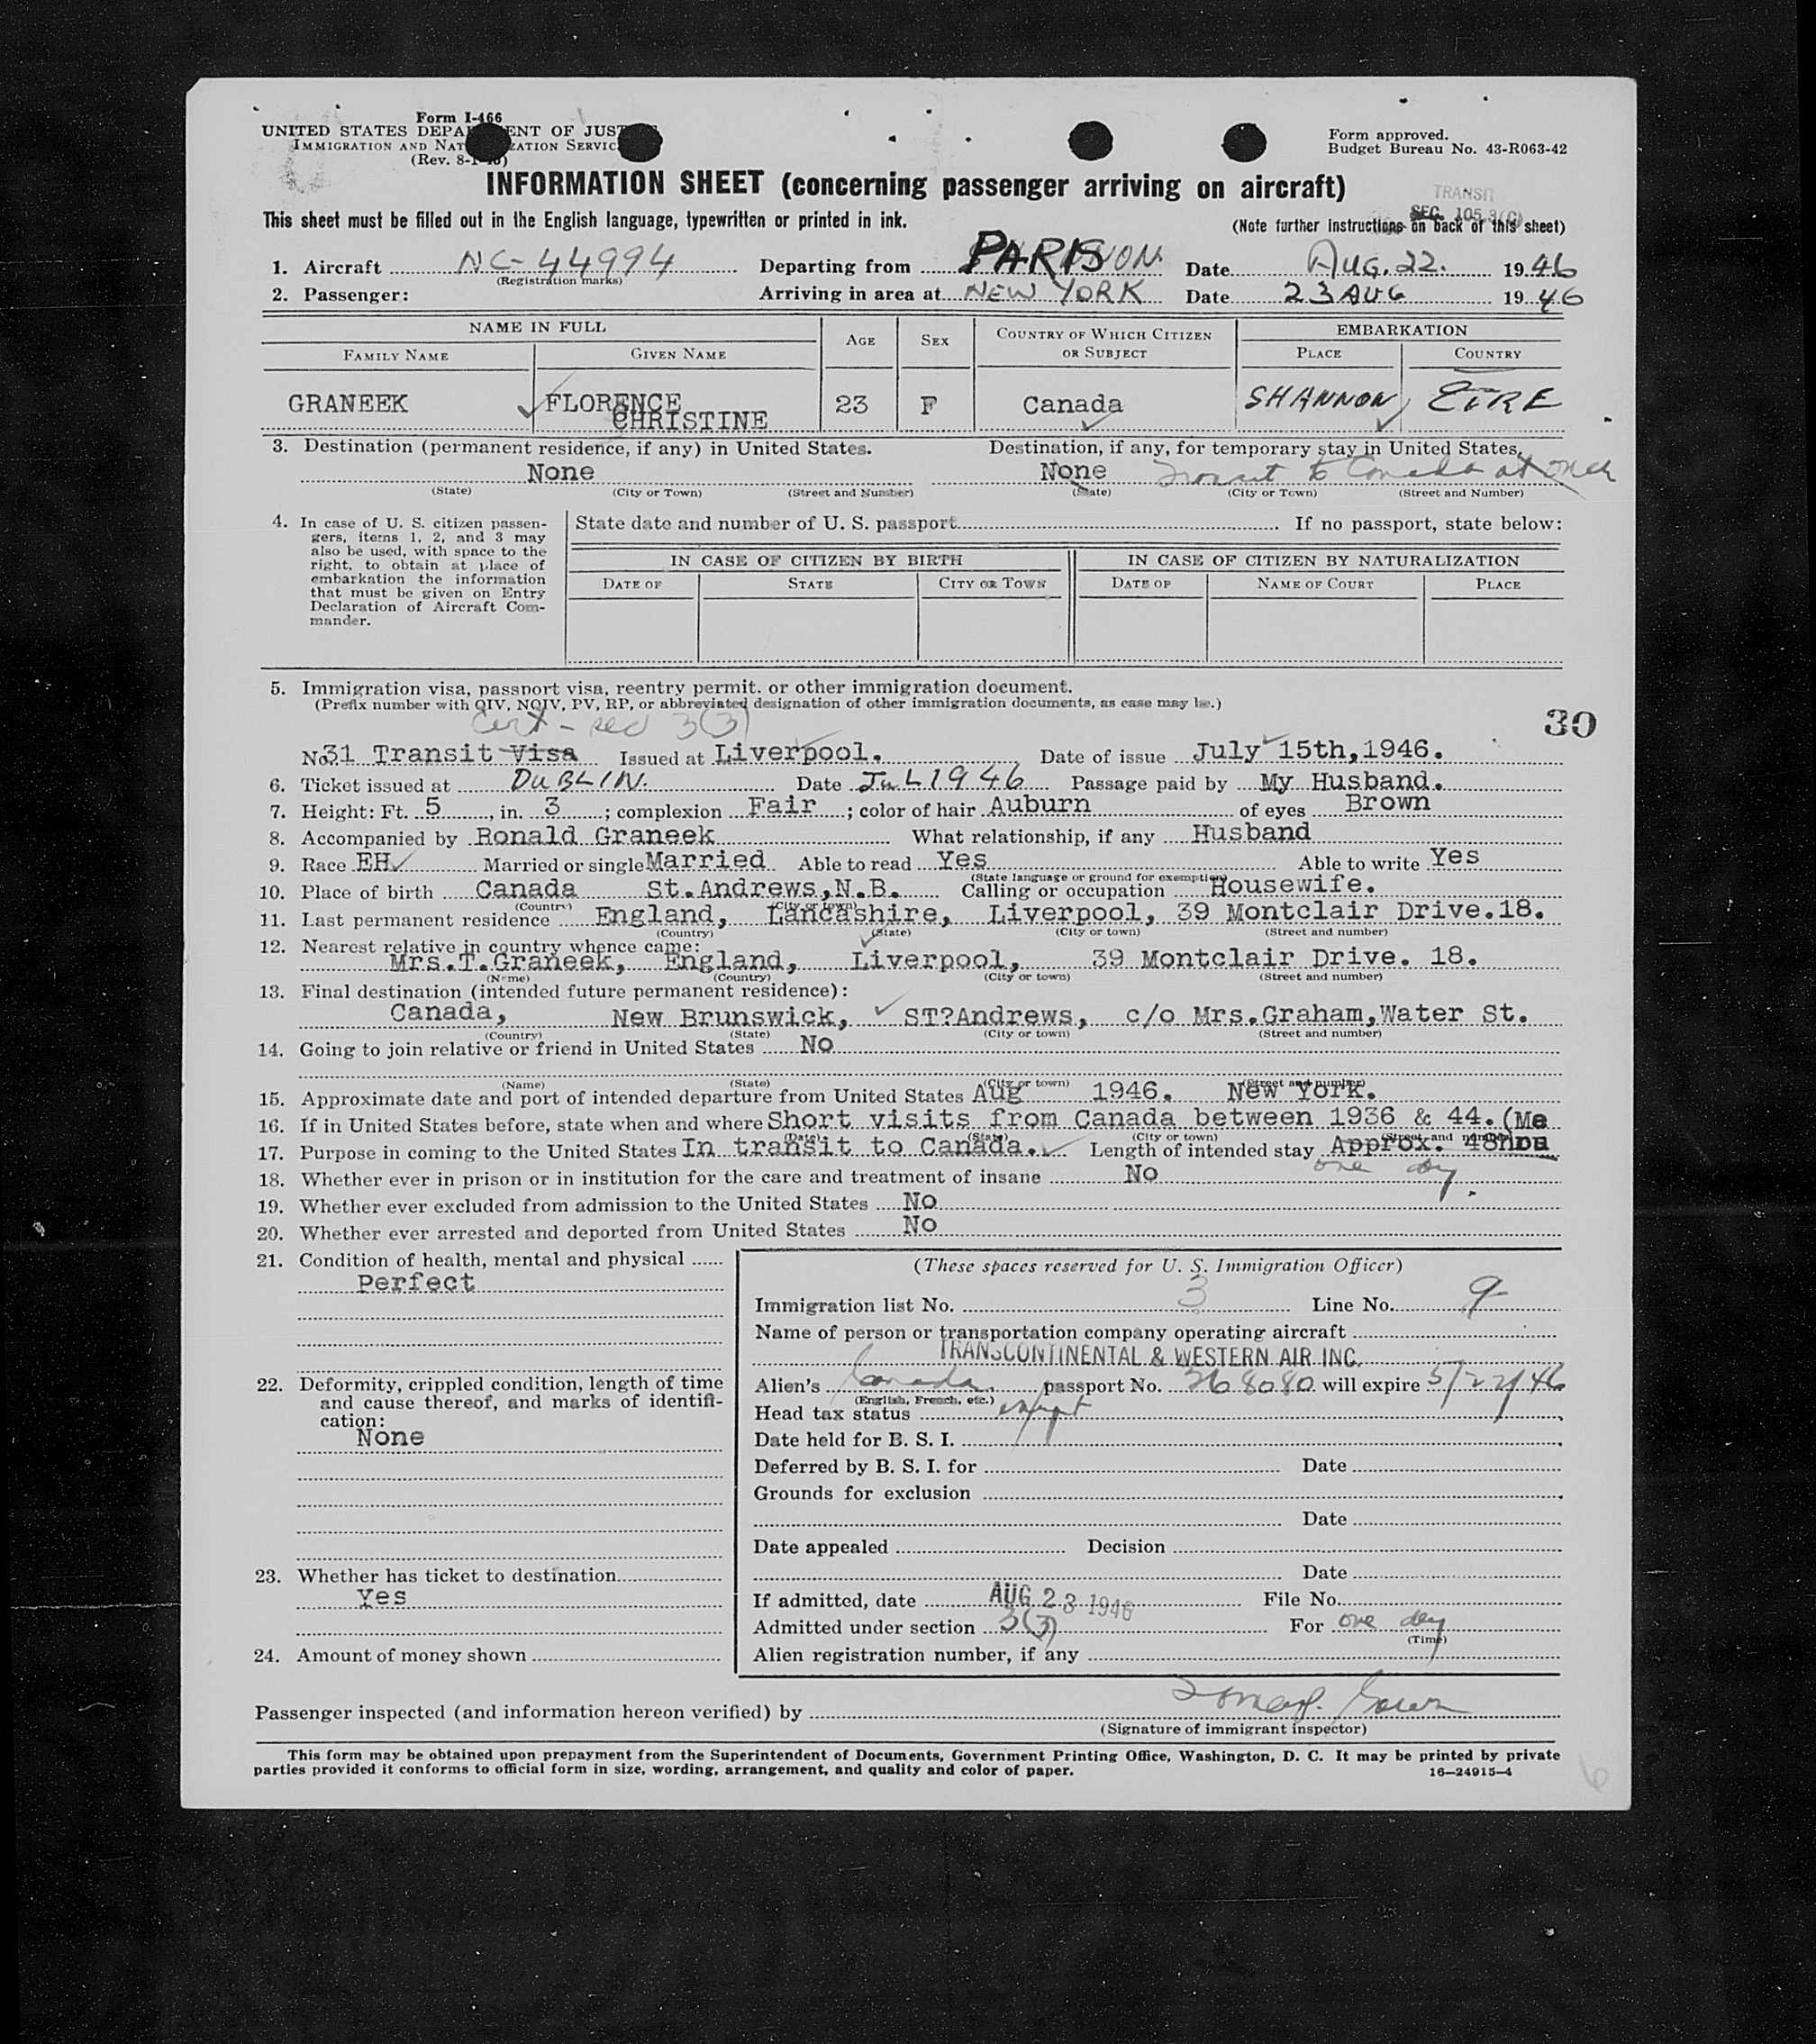 Form I-466
UNITED STATES DEPARTMENT OF JUSTICE
IMMIGRATION AND NATURALIZATION SERVICE
(Rev. 8-1-45)
Form approved.
Budget Bureau No. 43-R063-42
INFORMATION SHEET (concerning passenger arriving on aircraft)
TRANSIT
SEC. 105.3(C)
This sheet must be filled out in the English language, typewritten or printed in ink. (Note further instructions on back of this sheet)
1. Aircraft NC-44994 Departing from PARIS Date AUG. 22. 1946
(Registration marks)
2. Passenger: Arriving in area at NEW YORK Date 23 AUG 1946
NAME IN FULL AGE SEX COUNTRY OF WHICH CITIZEN OR SUBJECT EMBARKATION
FAMILY NAME GIVEN NAME PLACE COUNTRY
GRANEEK FLORENCE CHRISTINE 23 F Canada SHANNON EIRE
3. Destination (permanent residence, if any) in United States. Destination, if any, for temporary stay in United States.
None None transit to Canada at once
(State) (City or Town) (Street and Number) (State) (City or Town) (Street and Number)
4. In case of U. S. citizen passen-
gers, items 1, 2, and 3 may
also be used, with space to the
right, to obtain at place of
embarkation the information
that must be given on Entry
Declaration of Aircraft Com-
mander.
State date and number of U. S. passport If no passport, state below:
IN CASE OF CITIZEN BY BIRTH IN CASE OF CITIZEN BY NATURALIZATION
DATE OF STATE CITY OR TOWN DATE OF NAME OF COURT PLACE
5. Immigration visa, passport visa, reentry permit, or other immigration document.
(Prefix number with QIV, NQIV, PV, RP, or abbreviated designation of other immigration documents, as case may be.)
Cert - sec 3(3)
30
No. 31 Transit Visa Issued at Liverpool. Date of issue July 15th,1946.
6. Ticket issued at DUBLIN. Date JUL 1946 Passage paid by My Husband.
7. Height: Ft. 5, in. 3; complexion Fair; color of hair Auburn of eyes Brown
8. Accompanied by Ronald Graneek What relationship, if any Husband
9. Race EH Married or single Married Able to read Yes Able to write Yes
(State language or ground for exemption)
10. Place of birth Canada St.Andrews,N.B. Calling or occupation Housewife.
(Country) (City or town)
11. Last permanent residence England, Lancashire, Liverpool, 39 Montclair Drive.18.
(Country) (State) (City or town) (Street and number)
12. Nearest relative in country whence came:
Mrs.T.Graneek, England, Liverpool, 39 Montclair Drive. 18.
(Name) (Country) (City or town) (Street and number)
13. Final destination (intended future permanent residence):
Canada, New Brunswick, ST?Andrews, c/o Mrs.Graham,Water St.
(Country) (State) (City or town) (Street and number)
14. Going to join relative or friend in United States No
(Name) (State) (City or town) (Street and number)
15. Approximate date and port of intended departure from United States Aug 1946. New York.
16. If in United States before, state when and where Short visits from Canada between 1936 & 44.(Me
(Date) (State) (City or town) (Street and number)
17. Purpose in coming to the United States In transit to Canada. Length of intended stay Approx. 48hou
one day
18. Whether ever in prison or in institution for the care and treatment of insane No
19. Whether ever excluded from admission to the United States No
20. Whether ever arrested and deported from United States No
21. Condition of health, mental and physical
Perfect
22. Deformity, crippled condition, length of time
and cause thereof, and marks of identifi-
cation:
None
23. Whether has ticket to destination
Yes
24. Amount of money shown
(These spaces reserved for U. S. Immigration Officer)
Immigration list No. 3 Line No. 9
Name of person or transportation company operating aircraft
TRANSCONTINENTAL & WESTERN AIR INC.
Alien's Canada passport No. 368080 will expire 5/22/46
(English, French, etc.)
Head tax status exempt
Date held for B. S. I.
Deferred by B. S. I. for Date
Grounds for exclusion
Date
Date appealed Decision
Date
If admitted, date AUG 23 1946 File No.
Admitted under section 3(3) For one day
(Time)
Alien registration number, if any
Passenger inspected (and information hereon verified) by
(Signature of immigrant inspector)
This form may be obtained upon prepayment from the Superintendent of Documents, Government Printing Office, Washington, D. C. It may be printed by private
parties provided it conforms to official form in size, wording, arrangement, and quality and color of paper. 16—24915-4
6